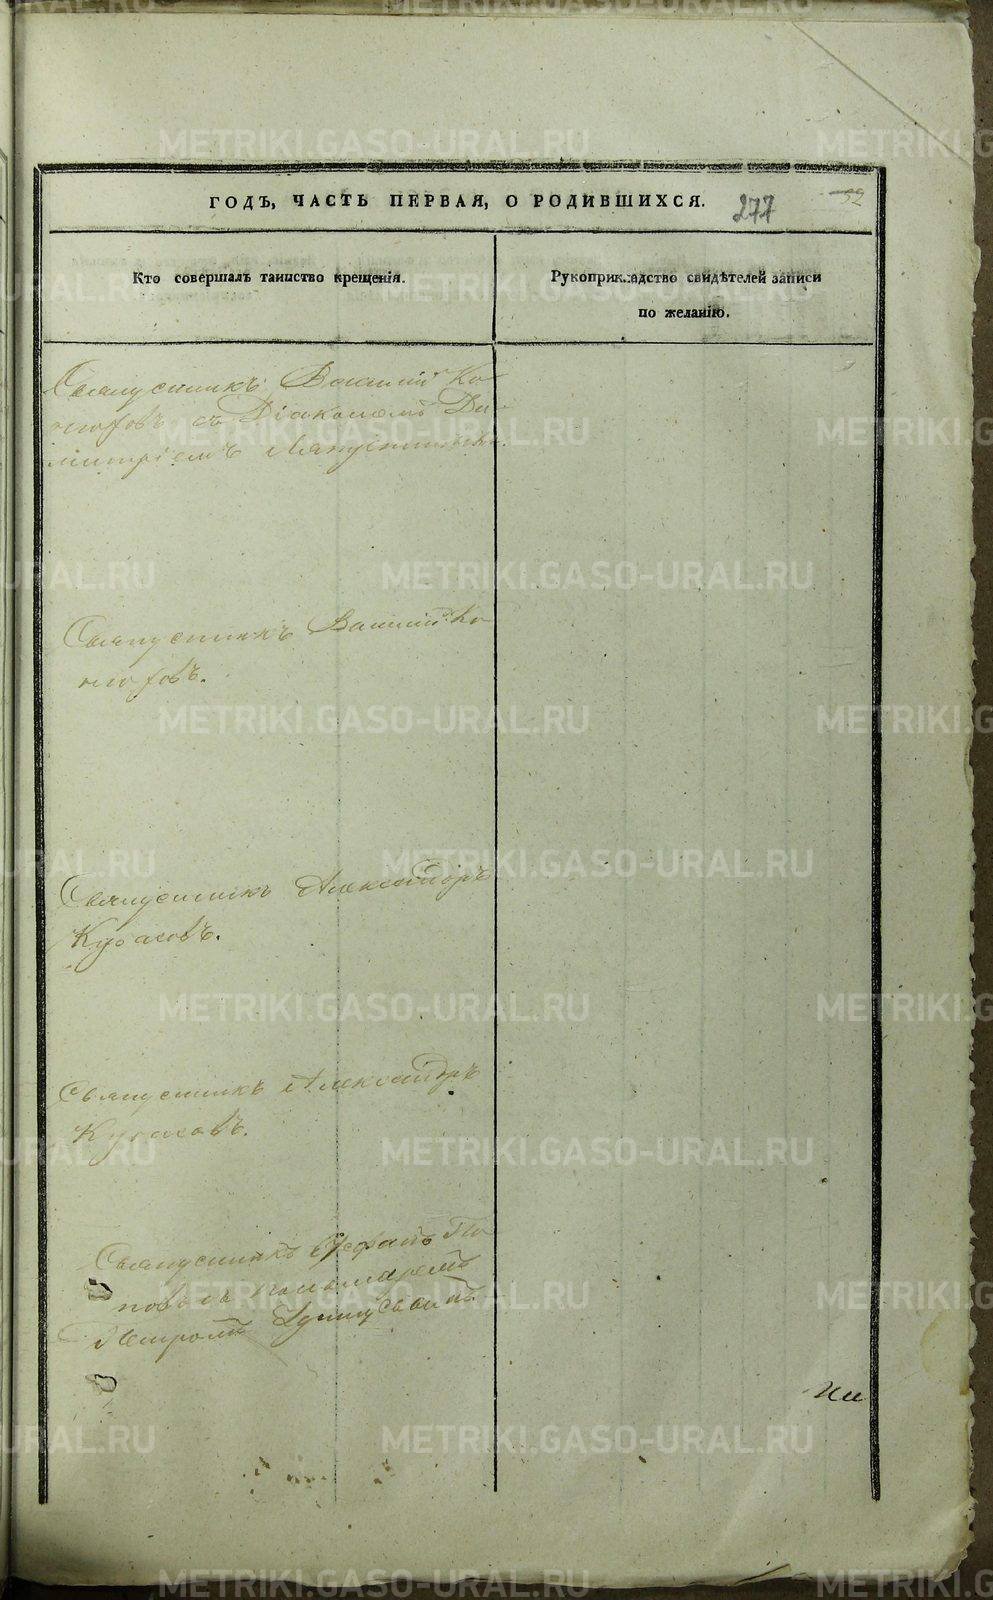 ГОДЪ, ЧАСТЬ ПЕРВАЯ, О РОДИВШИХСЯ. 277 52
Кто совершалъ таинство крещенія.
Рукоприкладство свидѣтелей записи
по желанію.
Священникъ Василій Ко-
нюховъ съ Діакономъ Ди-
митріемъ
Священникъ Василій Ко
нюховъ.
Священникъ Александръ
Кубасовъ.
Священникъ Александръ
Кубасовъ.
Священникъ По
повъ съ пономаремъ
Петромъ
METRIKI.GASO-URAL.RU